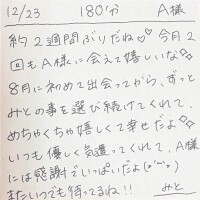 12/23 180分 A様
約2週間ぶりだね♡♡ 今月2
回もA様に会えて嬉しいな✧
8月に初めて出会ってから、ずっと
みとの事を選び続けてくれて、
めちゃくちゃ嬉しくて幸せだよ✧
いつも優しく気遣ってくれて、A様
には感謝でいっぱいだよ(о´∀`о)
またいつでも待ってるね!!
みと